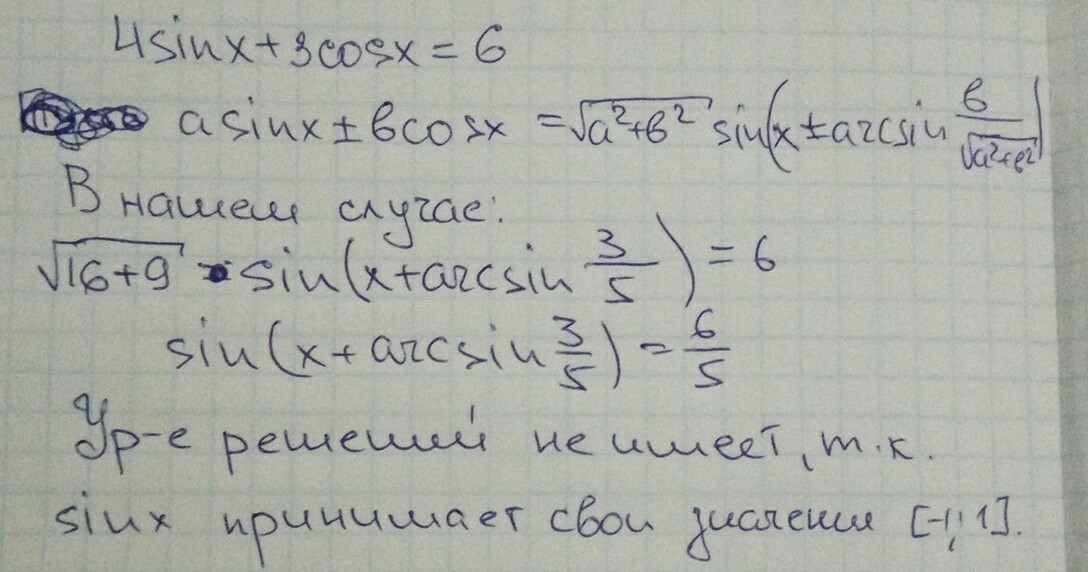 4sinx+3cosx=6
asinx±bcosx =√(a²+b²) sin(x±arcsin b/√(a²+b²))
В нашем случае:
√(16+9) · sin(x+arcsin 3/5)=6
sin(x+arcsin 3/5)=6/5
Ур-е решений не имеет, т.к.
sinx принимает свои значения [-1;1].